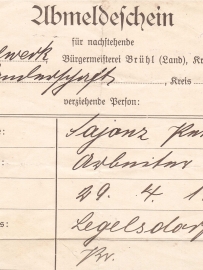 Abmeldeschein
für nachstehende
Bürgermeisterei Brühl (Land), Kr
, Kreis
verziehende Person:
Sajonz
Arbeiter
29. 4. 1
Legelsdorf
Kr.